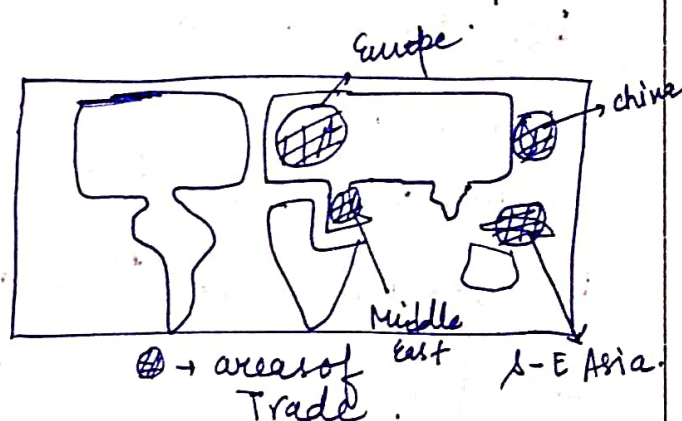 Europe
china
Middle
East
S-E Asia.
→ areas of
Trade.